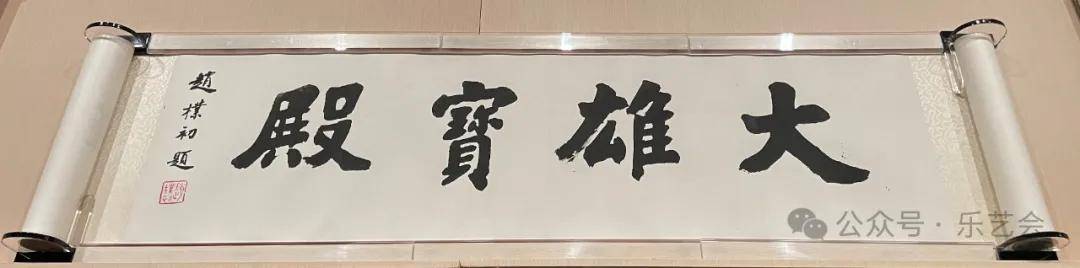 大雄寶殿
趙樸初題
公众号·乐艺会